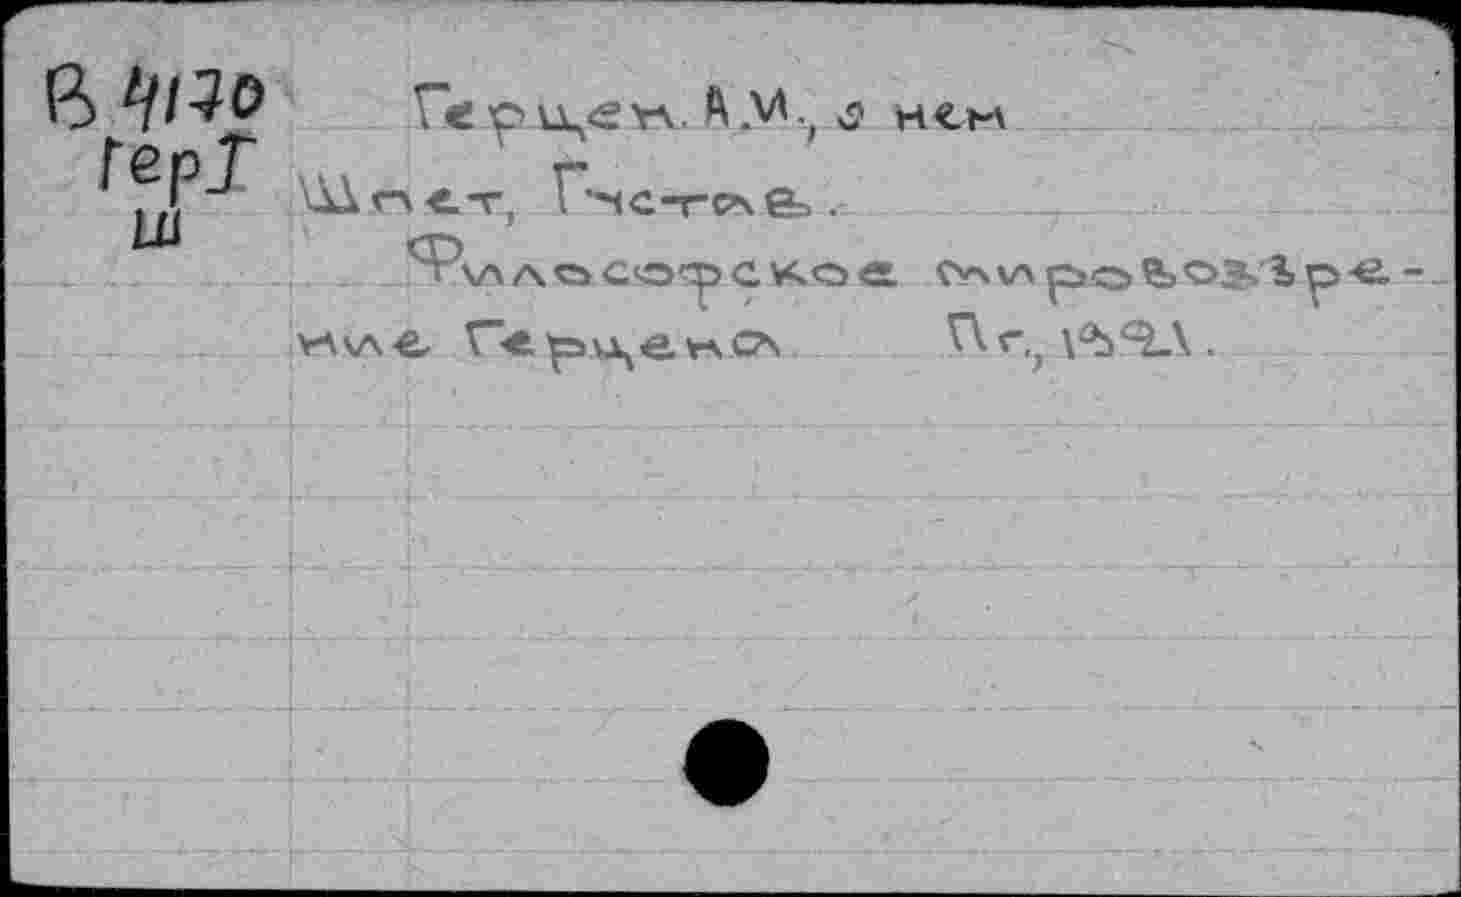 В 4170 Герцен. А.И., о нем
ГерТ
Ш Шпет, Густав.
Философское мировоззре-
ние Герцена Пг., 1921.